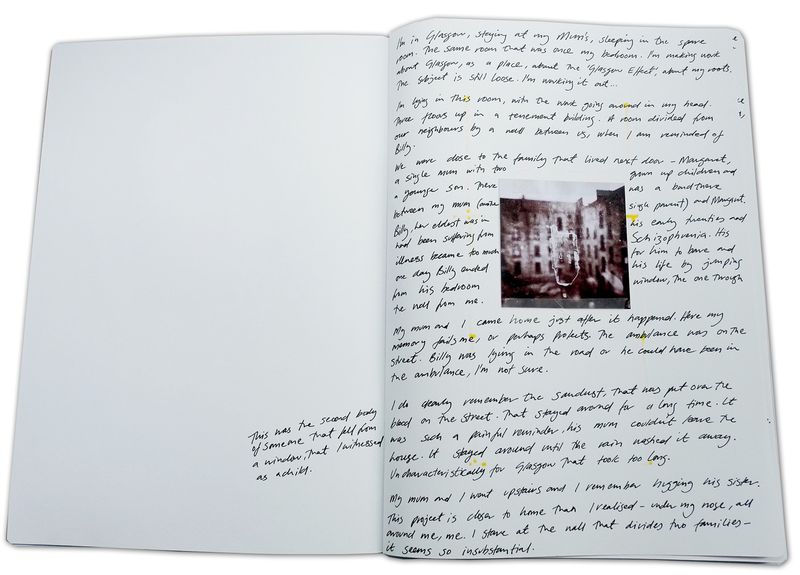 This was the second body
of someone that fell from
a window, that I witnessed
as a child.
I'm in Glasgow, staying at my Mum's, sleeping in the spare
room. The same room that was once my bedroom. I'm making work
about Glasgow, as a place, about the 'Glasgow Effect', about my roots.
The subject is still loose. I'm working it out...
I'm lying in this room, with the work going around in my head.
Three floors up in a tenement building. A room divided from
our neighbours by a wall between us, when I am reminded of
Billy.
We were close to the family that lived next door - Margaret,
a single mum with two grown up children and
a younger son. There was a bond there
between my mum (another single parent) and Margaret.
Billy, her eldest was in his early twenties and
had been suffering from Schizophrenia. His
illness became too much for him to bare and
one day Billy ended his life by jumping
from his bedroom window, the one through
the wall from me.
My mum and I came home just after it happened. Here my
memory fails me, or perhaps protects. The ambulance was on the
street. Billy was lying in the road or he could have been in
the ambulance, I'm not sure.
I do clearly remember the sawdust, that was put over the
blood on the street. That stayed around for a long time. It
was such a painful reminder, his mum couldn't leave the
house. It stayed around until the rain washed it away.
Uncharacteristically for Glasgow that took too long.
My mum and I went upstairs and I remember hugging his sister.
This project is closer to home than I realised - under my nose, all
around me, me. I stare at the wall that divides two families -
it seems so insubstantial.